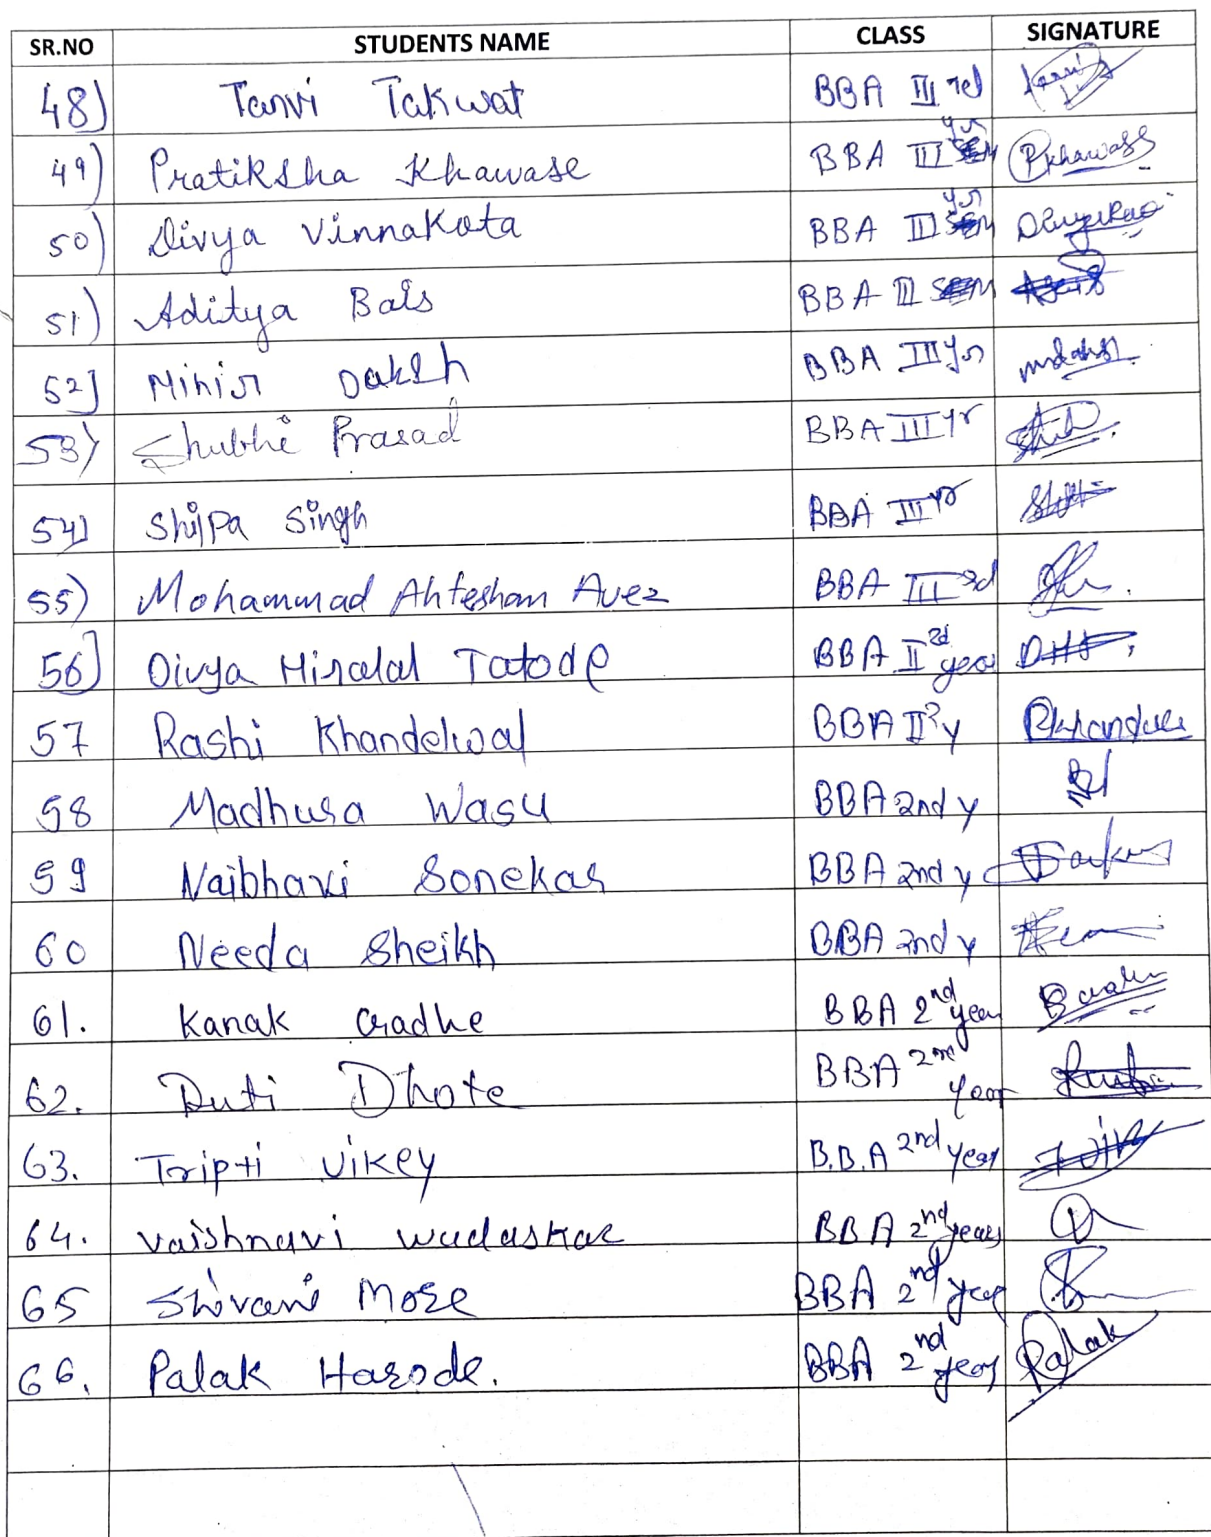 SR.NO STUDENTS NAME CLASS SIGNATURE
48) Tanvi Takwat BBA III rd
49) Pratiksha Khawase BBA III yr Pkhawase
50) Divya Vinnakota BBA III yr
51) Aditya Bais BBA III
52] Mihir Daksh BBA III yr
53) Shubhi Prasad BBA III yr
54) Shilpa Singh BBA III yr
55) Mohammad Ahtesham Avez BBA III rd
56] Divya Hiralal Tatode BBA II 2d year
57 Rashi Khandelwal BBA II y
58 Madhura Wasu BBA 2nd y
59 Vaibhavi Sonekar BBA 2nd y
60 Needa Sheikh BBA 2nd y
61. Kanak Gradhe BBA 2nd year
62. Ruti Dhote BBA 2nd Year
63. Tripti Uikey B.B.A 2nd Year
64. Vaishnavi Wudaskar BBA 2nd years
65 Shivani More BBA 2nd year
66. Palak Harode. BBA 2nd year Palak